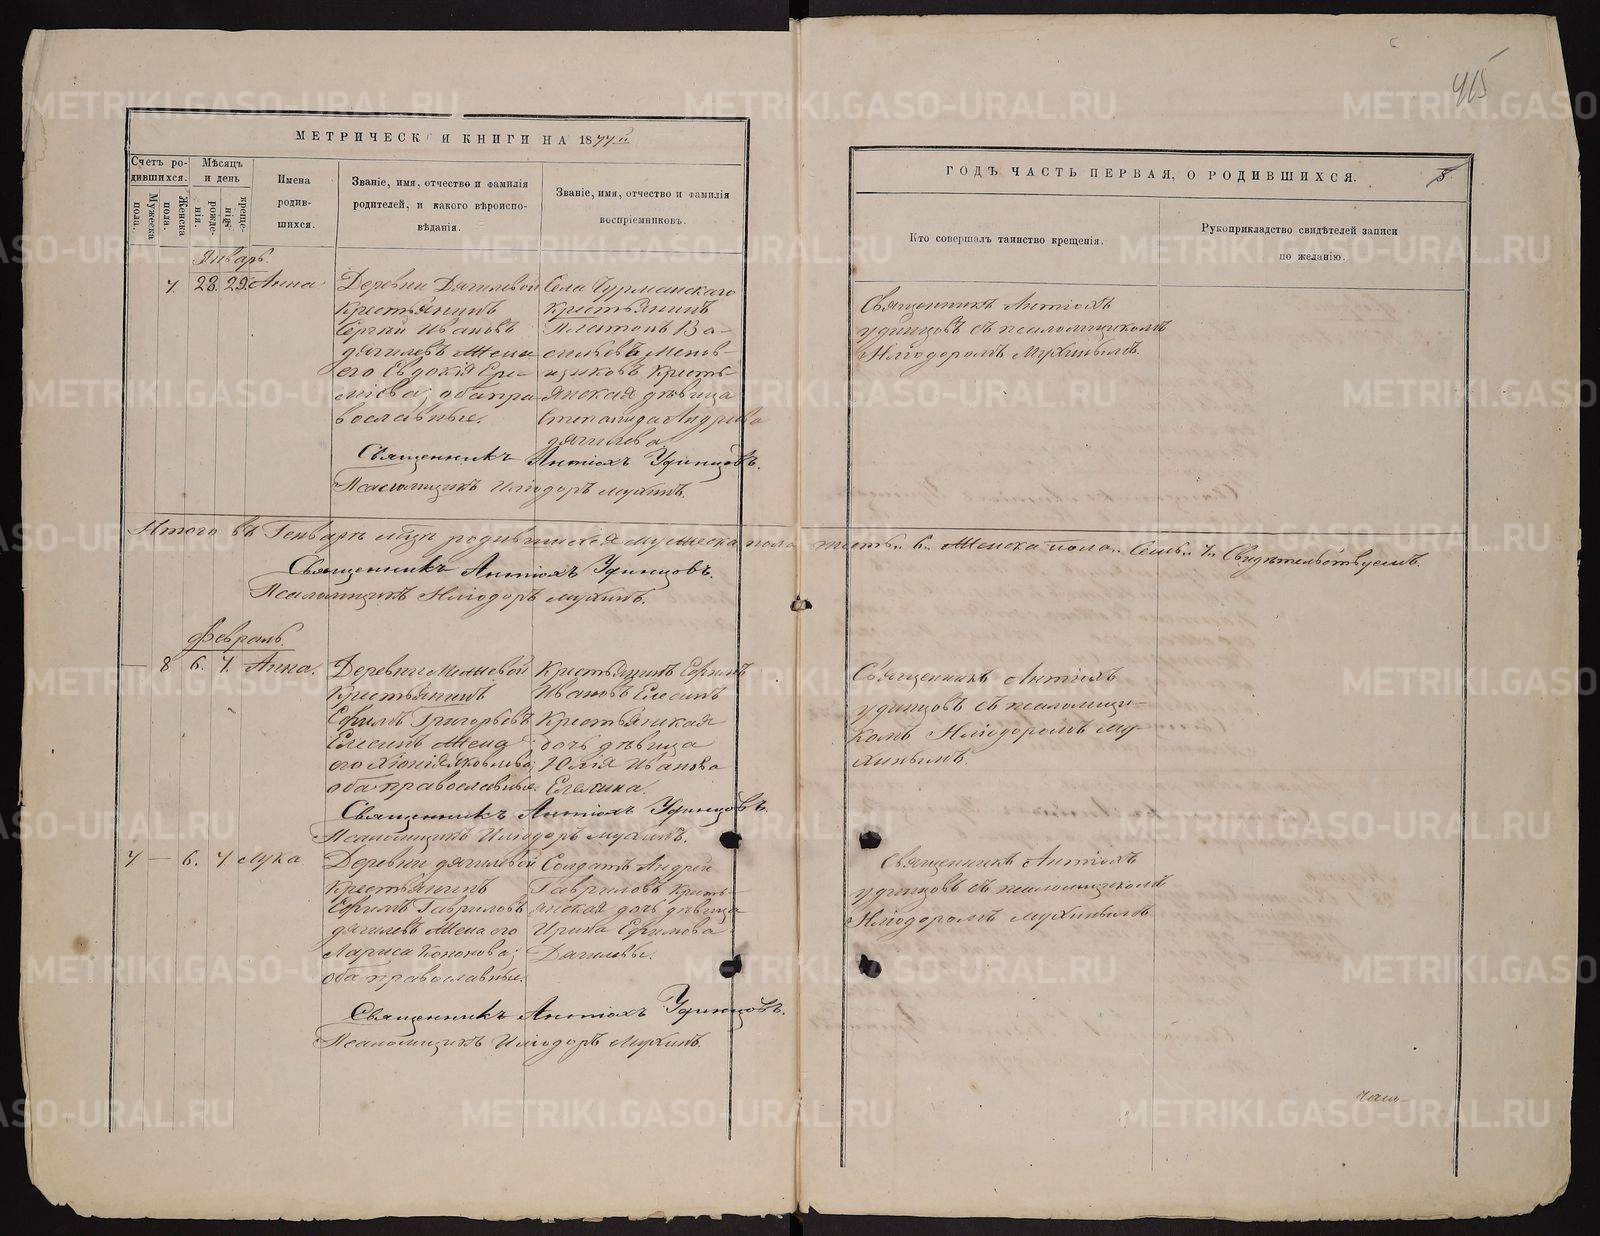 415
МЕТРИЧЕСК И КНИГИ НА 1877й
Счетъ ро-
дившихся.
Мужеска
пола.
Женска
пола.
Мѣсяцъ
и день
рожде-
нія.
креще-
нія.
Имена
родив-
шихся.
Званіе, имя, отчество и фамилія
родителей, и какого вѣроиспо-
вѣданія.
Званіе, имя, отчество и фамилія
воспріемниковъ.
Январь.
7. 28. 29. Анна
Деревни Дягилевой
Крестьянинъ
Сергій Ивановъ
дягилевъ Жена
его Евдокія Ере-
міева; оба пра-
вославные.
Села Чурманскаго
крестьянинъ
Платонъ Ва-
сильевъ Менов-
щиковъ Кресть-
янская дѣвица
Степанида Андреева
дягилева
Священникъ Антіохъ Удинцовъ.
Псаломщикъ Иліодоръ Мухинъ.
Итого въ Генварѣ м-цѣ родившихся мужеска пола шесть.. 6.. Женска пола.. Семь.. 7.. Свидѣтельствуемъ.
Священникъ Антіохъ Удинцовъ.
Псаломщикъ Иліодоръ Мухинъ.
Февраль.
— 8 6. 7. Анна.
Деревни
Крестьянинъ
Ефимъ Григорьевъ
Елесинъ Жена
его Хіонія Яковлева;
оба православные.
Крестьянинъ Ефимъ
Ивановъ Елесинъ
Крестьянская
дочь дѣвица
Юлія Иванова
Елесина.
Священникъ Антіохъ Удинцовъ.
Псаломщикъ Иліодоръ Мухинъ.
7 — 6. 7 Лука
Деревни дягилевой
Крестьянинъ
Ефимъ Гавриловъ
дягилевъ Жена его
Лариса Кононова;
оба православные.
Солдатъ Андрей
Гавриловъ Кресть-
янская дочь дѣвица
Ирина Ефимова
Дягилевы.
Священникъ Антіохъ Удинцовъ.
Псаломщикъ Иліодоръ Мухинъ.
ГОДЪ ЧАСТЬ ПЕРВАЯ, О РОДИВШИХСЯ.
Кто совершалъ таинство крещенія.
Рукоприкладство свидѣтелей записи
по желанію.
Священникъ Антіохъ
удинцовъ съ псаломщикомъ
Иліодоромъ Мухинымъ.
Священникъ Антіохъ
удинцовъ съ псаломщи-
комъ Иліодоромъ Му-
хинымъ.
Священникъ Антіохъ
удинцовъ съ псаломщикомъ
Иліодоромъ Мухинымъ
METRIKI.GASO-URAL.RU